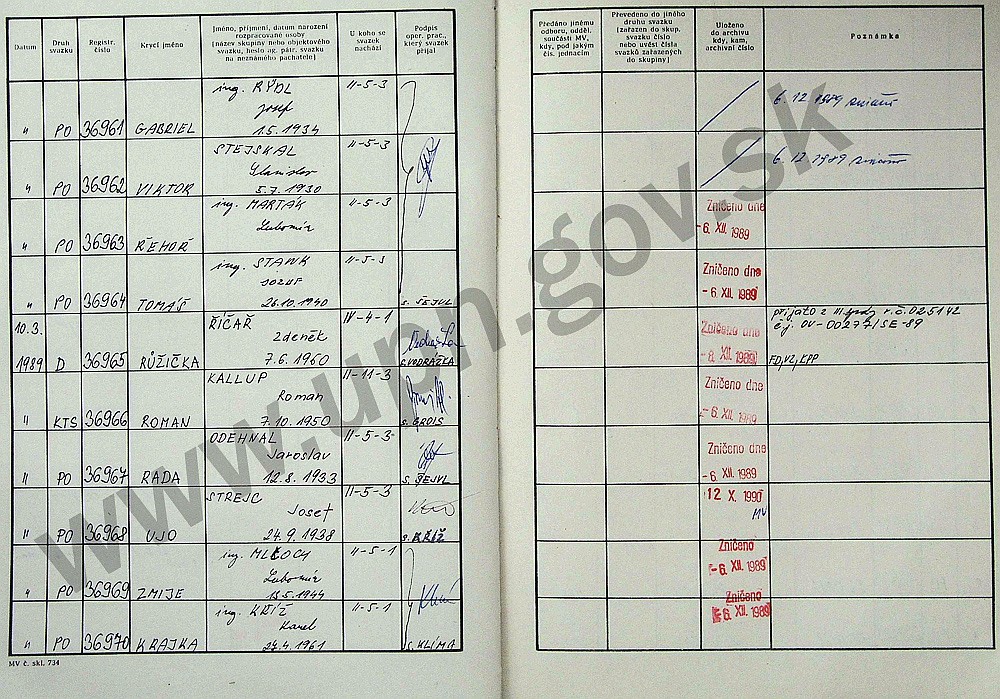 Datum
Druh svazku
Registr. číslo
Krycí jméno
Jméno, příjmení, datum narození
rozpracované osoby
[název skupiny nebo objektového
svazku, heslo ag. pátr. svazku
na neznámého pachatele]
U koho se
svazek
nachází
Podpis
oper. prac.,
který svazek
přijal
Předáno jinému
odboru, odděl.
součásti MV,
kdy, pod jakým
čís. jednacím
Převedeno do jiného
druhu svazku
[zařazen do skup.
svazku číslo
nebo uvést čísla
svazků zařazených
do skupiny]
Uloženo
do archivu
kdy, kam,
archivní číslo
Poznámka
ing. RÝDL II-5-3
Josef
" PO 36961 GABRIEL 1.5.1934
6.12.1989
STEJSKAL II-5-3
Stanislav
" PO 36962 VIKTOR 5.7.1930
6.12.1989
ing. MARTÁK II-5-3
Lubomír
" PO 36963 ŘEHOŘ
Zničeno dne
-6. XII. 1989
ing. STANK II-5-3
JOZEF
" PO 36964 TOMÁŠ 26.10.1940 s. ŠEJVL
Zničeno dne
-6. XII. 1989
10.3. ŘÍČAŘ IV-4-1
Zdeněk
1989 D 36965 RŮŽIČKA 7.6.1960 s. VODRÁŽKA
Zničeno dne
-8. XII. 1989
přijato z III. r.č. 025142
č.j. OV-00277/SE-89
FD, VZ, EPP
KALLUP II-11-3
Roman
" KTS 36966 ROMAN 7.10.1950 s. GROIS
Zničeno dne
-6. XII. 1989
ODEHNAL II-5-3
Jaroslav
" PO 36967 RADA 12.8.1933 s. ŠEJVL
Zničeno dne
-6. XII. 1989
STREJC II-5-3
Josef
" PO 36968 UJO 24.9.1938 s. KŘÍŽ
12 X. 1990
MV
ing. MLČOCH II-5-1
Lubomír
" PO 36969 ZMIJE
Zničeno
-6. XII. 1989
ing. KŘÍŽ II-5-1
Karel
" PO 36970 KRAJKA 24.4.1961 s. KLÍMA
Zničeno
-6. XII. 1989
MV č. skl. 734
www.upn.gov.sk